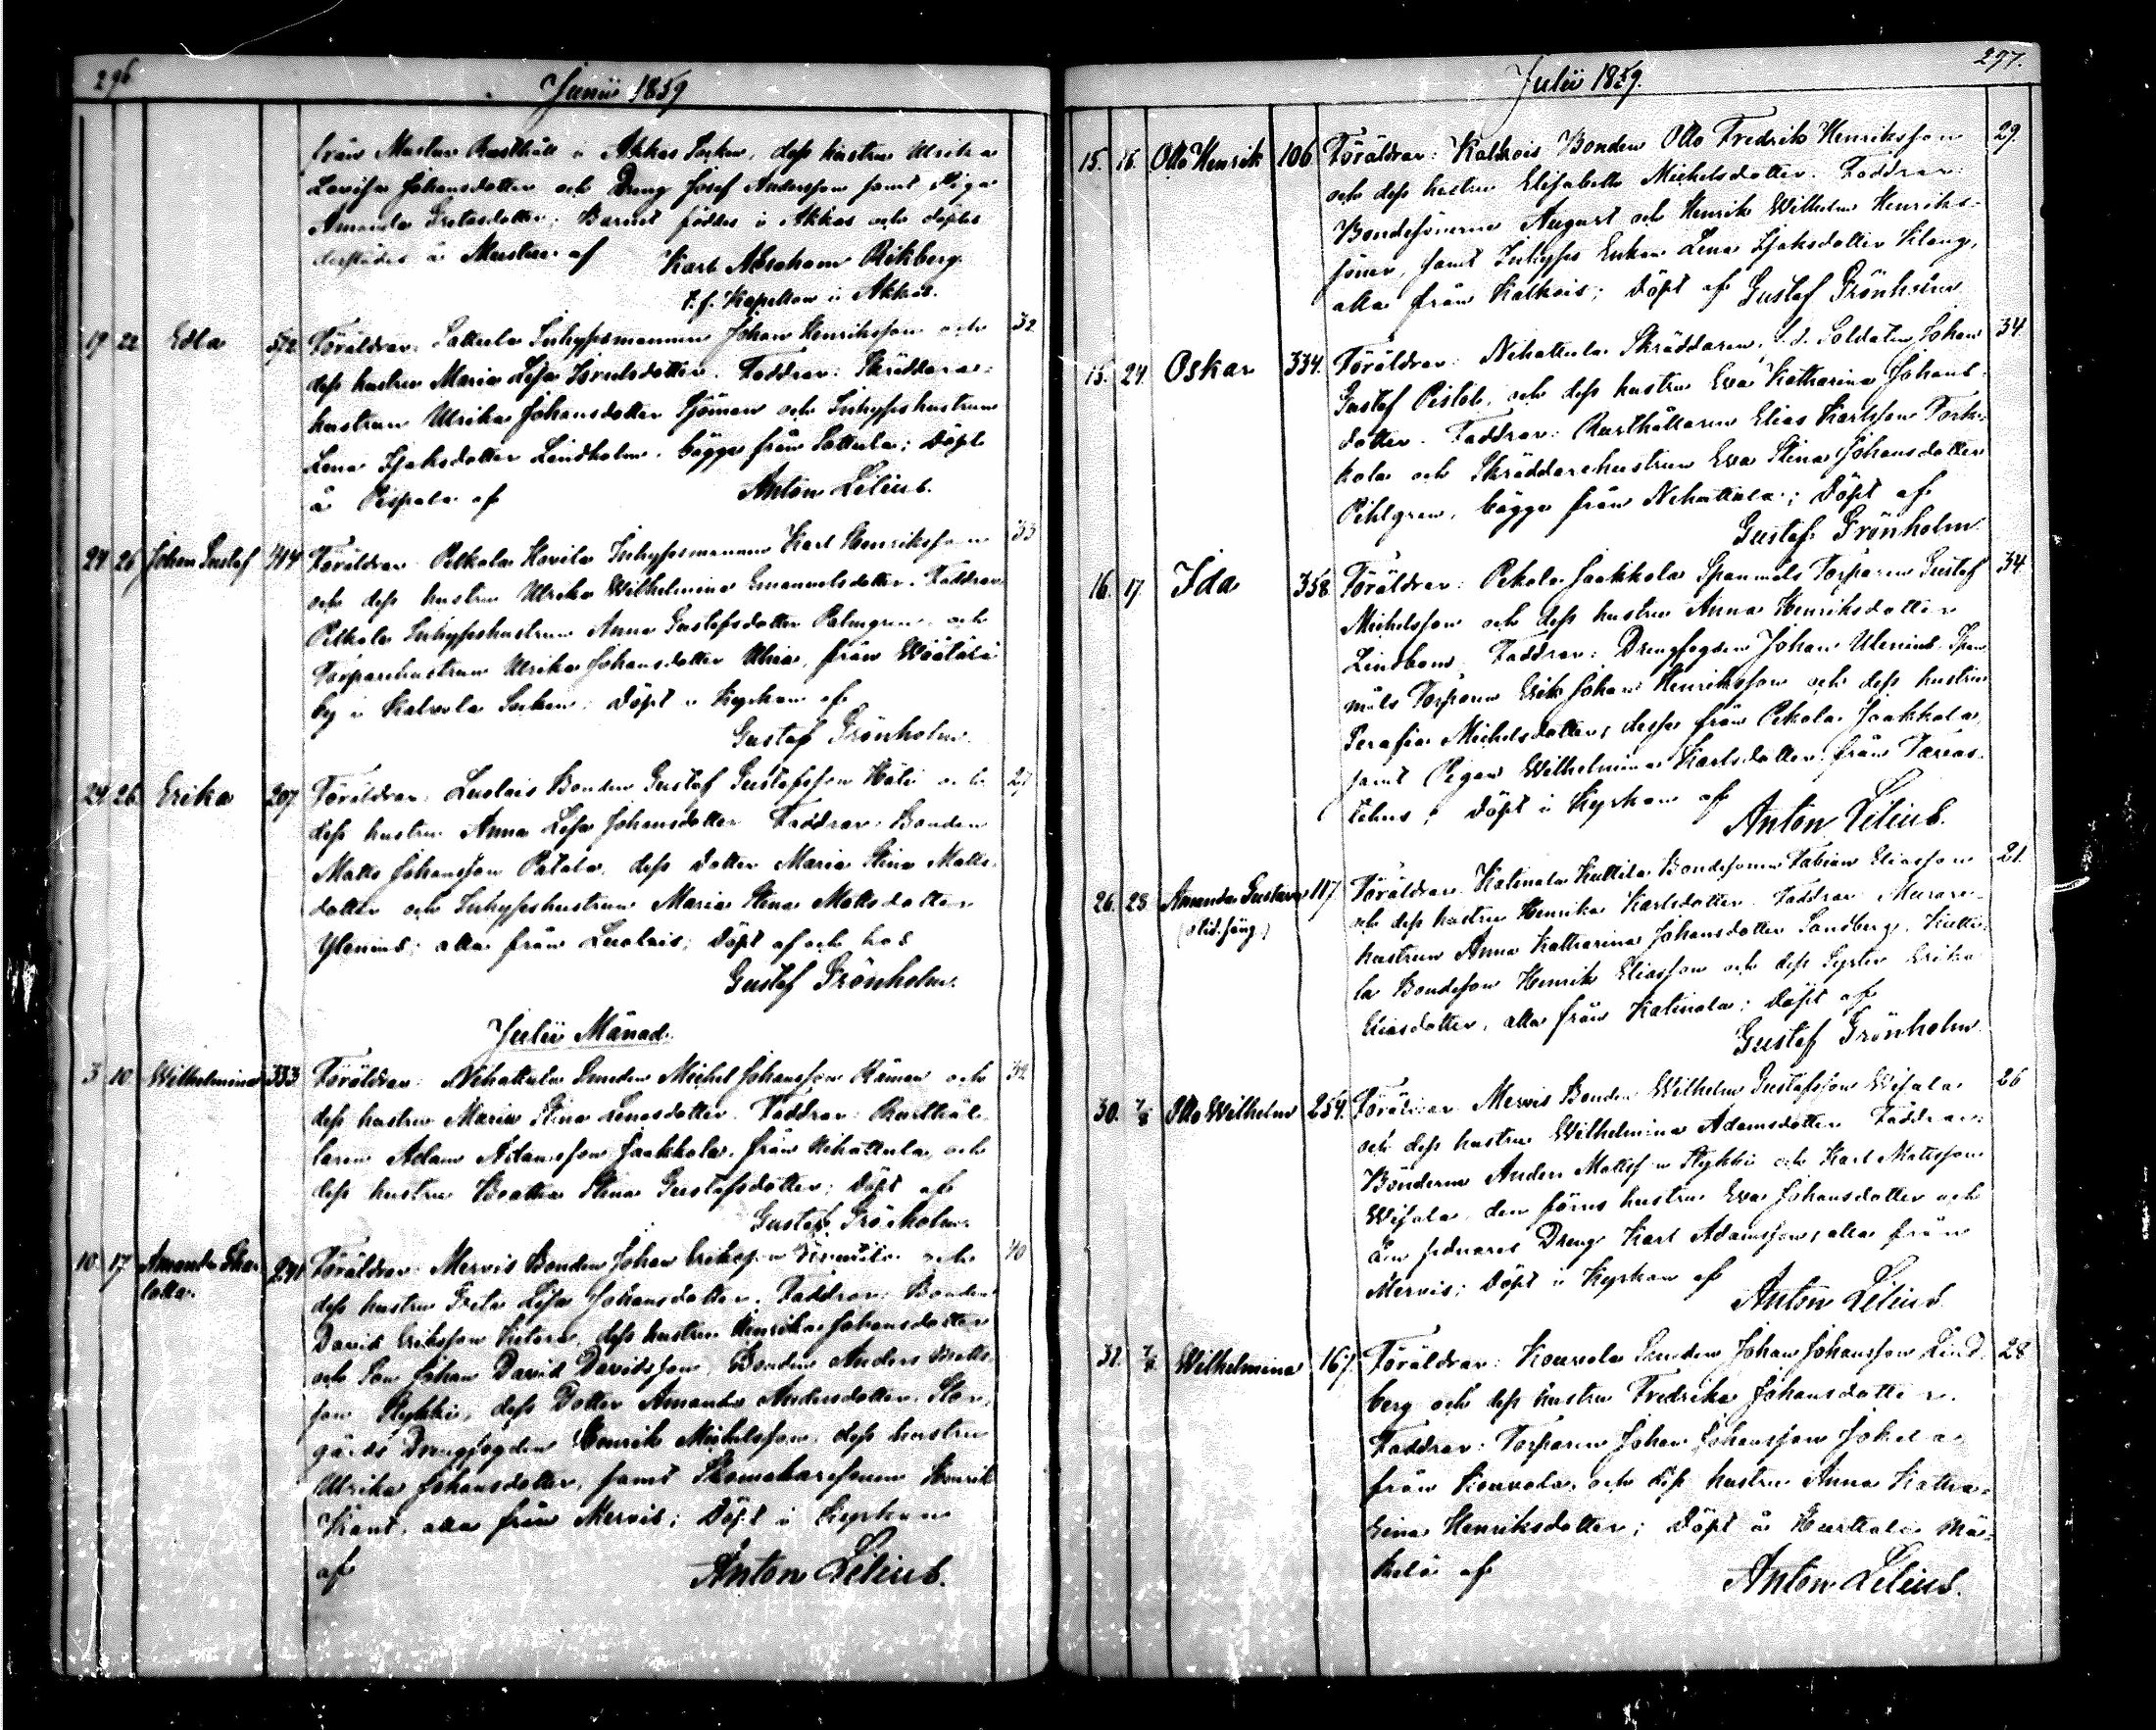 296
Junii 1859
från Mustue Rusthåll i Akkas Socken, dess hustru Ulrika
Lovisa Johansdotter och Dreng Josef Andersson samt Pigan
Amanda Gretasdotter; Barnet föddes i Akkas och döptes
derstädes å Mustue af Karl Abraham Rikberg
t.f. Kapellan i Akkas.
19 22 Edla 572 Föräldrar: Sattula Inhysesmannen Johan Henriksson och 32
dess hustru Maria Lisa Israelsdotter. Faddrar: Skräddare-
hustrun Ulrika Johansdotter Sjöman och Inhyseshustrun
Lena Isaksdotter Lindholm, bägge från Sattula; Döpt
å Pispala af Anton Lilius.
24 26 Johan Gustaf 414 Föräldrar: Pelkola Inhysesmannen Karl Henriksson 33
och dess hustru Ulrika Wilhelmina Emanuelsdotter. Faddrar:
Pelkola Inhyseshustrun Anna Gustafsdotter Palmgren och
Torparehustrun Ulrika Johansdotter från Wäätälä
by i Kalvola Socken; Döpt i Kyrkan af
Gustaf Grönholm.
24 26 Erika 297 Föräldrar: Luolais Bonden Gustaf Gustafsson och 27
dess hustru Anna Lisa Johansdotter. Faddrar: Bonden
Matts Johansson Patala, dess dotter Maria Stina Matts-
dotter och Inhyseshustrun Maria Stina Mattsdotter
Ylenius; alla från Luolais; Döpt af och hos
Gustaf Grönholm.
Julii Månad.
3 10 Wilhelmina 333 Föräldrar: Nihattula Smeden Michel Johansson Råman och 32
dess hustru Maria Stina Enasdotter. Faddrar: Rusthål-
laren Adam Adamsson Jaakkola, från Nihattula, och
dess hustru Beatha Stina Gustafsdotter; Döpt af
Gustaf Grönholm.
10 17 Amanda Char- 241 Föräldrar: Mervis Bonden Johan Eriksson och 40
lotta.
dess hustru Greta Lisa Johansdotter. Faddrar: Bonden
David Eriksson dess hustru Henrika Johansdotter
och Son Johan David Davidsson, Bonden Anders Matts-
son Stykki, dess Dotter Amanda Andersdotter, Stor-
gårds Drengfogden Henrik Michelsson, dess hustru
Ulrika Johansdotter, samt Skomakaresonen Henrik
Kant, alla från Mervis; Döpt i Kyrkan
af Anton Lilius.
297.
Julii 1859.
15. 16. Otto Henrik 106 Föräldrar: Kalkois Bonden Otto Fredrik Henriksson 29.
och dess hustru Elisabeth Michelsdotter. Faddrar:
Bondesönerne August och Henrik Wilhelm Henriks-
söner, samt Inhyses Enkan Lena Isaksdotter Klang,
alla från Kalkois; Döpt af Gustaf Grönholm
15. 24. Oskar 334. Föräldrar: Nihattula Skräddaren, f.d. Soldaten Johan 34.
Gustaf Pistol, och dess hustru Eva Katharina Johans-
dotter. Faddrar: Rusthållaren Elias Karlsson Tork-
kola och Skräddarehustrun Eva Stina Johansdotter
Pihlgren, bägge från Nihattula; Döpt af
Gustaf Grönholm
16. 17. Ida 358 Föräldrar: Pekola Jaakkola Spanmåls Torparen Gustaf 34
Michelsson och dess hustru Anna Henriksdotter
Lindbom. Faddrar: Drengfogden Johan Ulenius, Span-
måls Torparen Erik Johan Henriksson och dess hustru
Serafia Michelsdotter, desse från Pekola Jaakkola,
samt Pigan Wilhelmina Karlsdotter från Tavas-
tehus; Döpt i Kyrkan af
Anton Lilius.
26. 28 Amanda Gustava 117 Föräldrar: Katinala Kuttila Bondesonen Fabian Eliasson 21.
(Oid. säng.)
och dess hustru Henrika Karlsdotter. Faddrar: Murare-
hustrun Anna Katharina Johansdotter Sandberg, Kutti-
la Bondeson Henrik Eliasson och dess Syster Erika
Eliasdotter, alla från Katinala; Döpt af
Gustaf Grönholm.
30. 7/8 Otto Wilhelm 259. Föräldrar: Mervis Bonden Wilhelm Gustafsson Wisala 26
och dess hustru Wilhelmina Adamsdotter. Faddrar:
Bönderne Anders Mattsson Stykki och Karl Mattsson
Wisala, den förres hustru Eva Johansdotter och
den sednares Dreng Karl Adamsson, alla från
Mervis; Döpt i Kyrkan af
Anton Lilius
31. 7/8 Wilhelmina 167. Föräldrar: Kouvola Smeden Johan Johansson Lind- 28
berg och dess hustru Fredrika Johansdotter.
Faddrar: Torparen Johan Johansson Jokela
från Kouvola, och dess hustru Anna Katha-
rina Henriksdotter; Döpt å Hurttala Mä-
kelä af Anton Lilius.